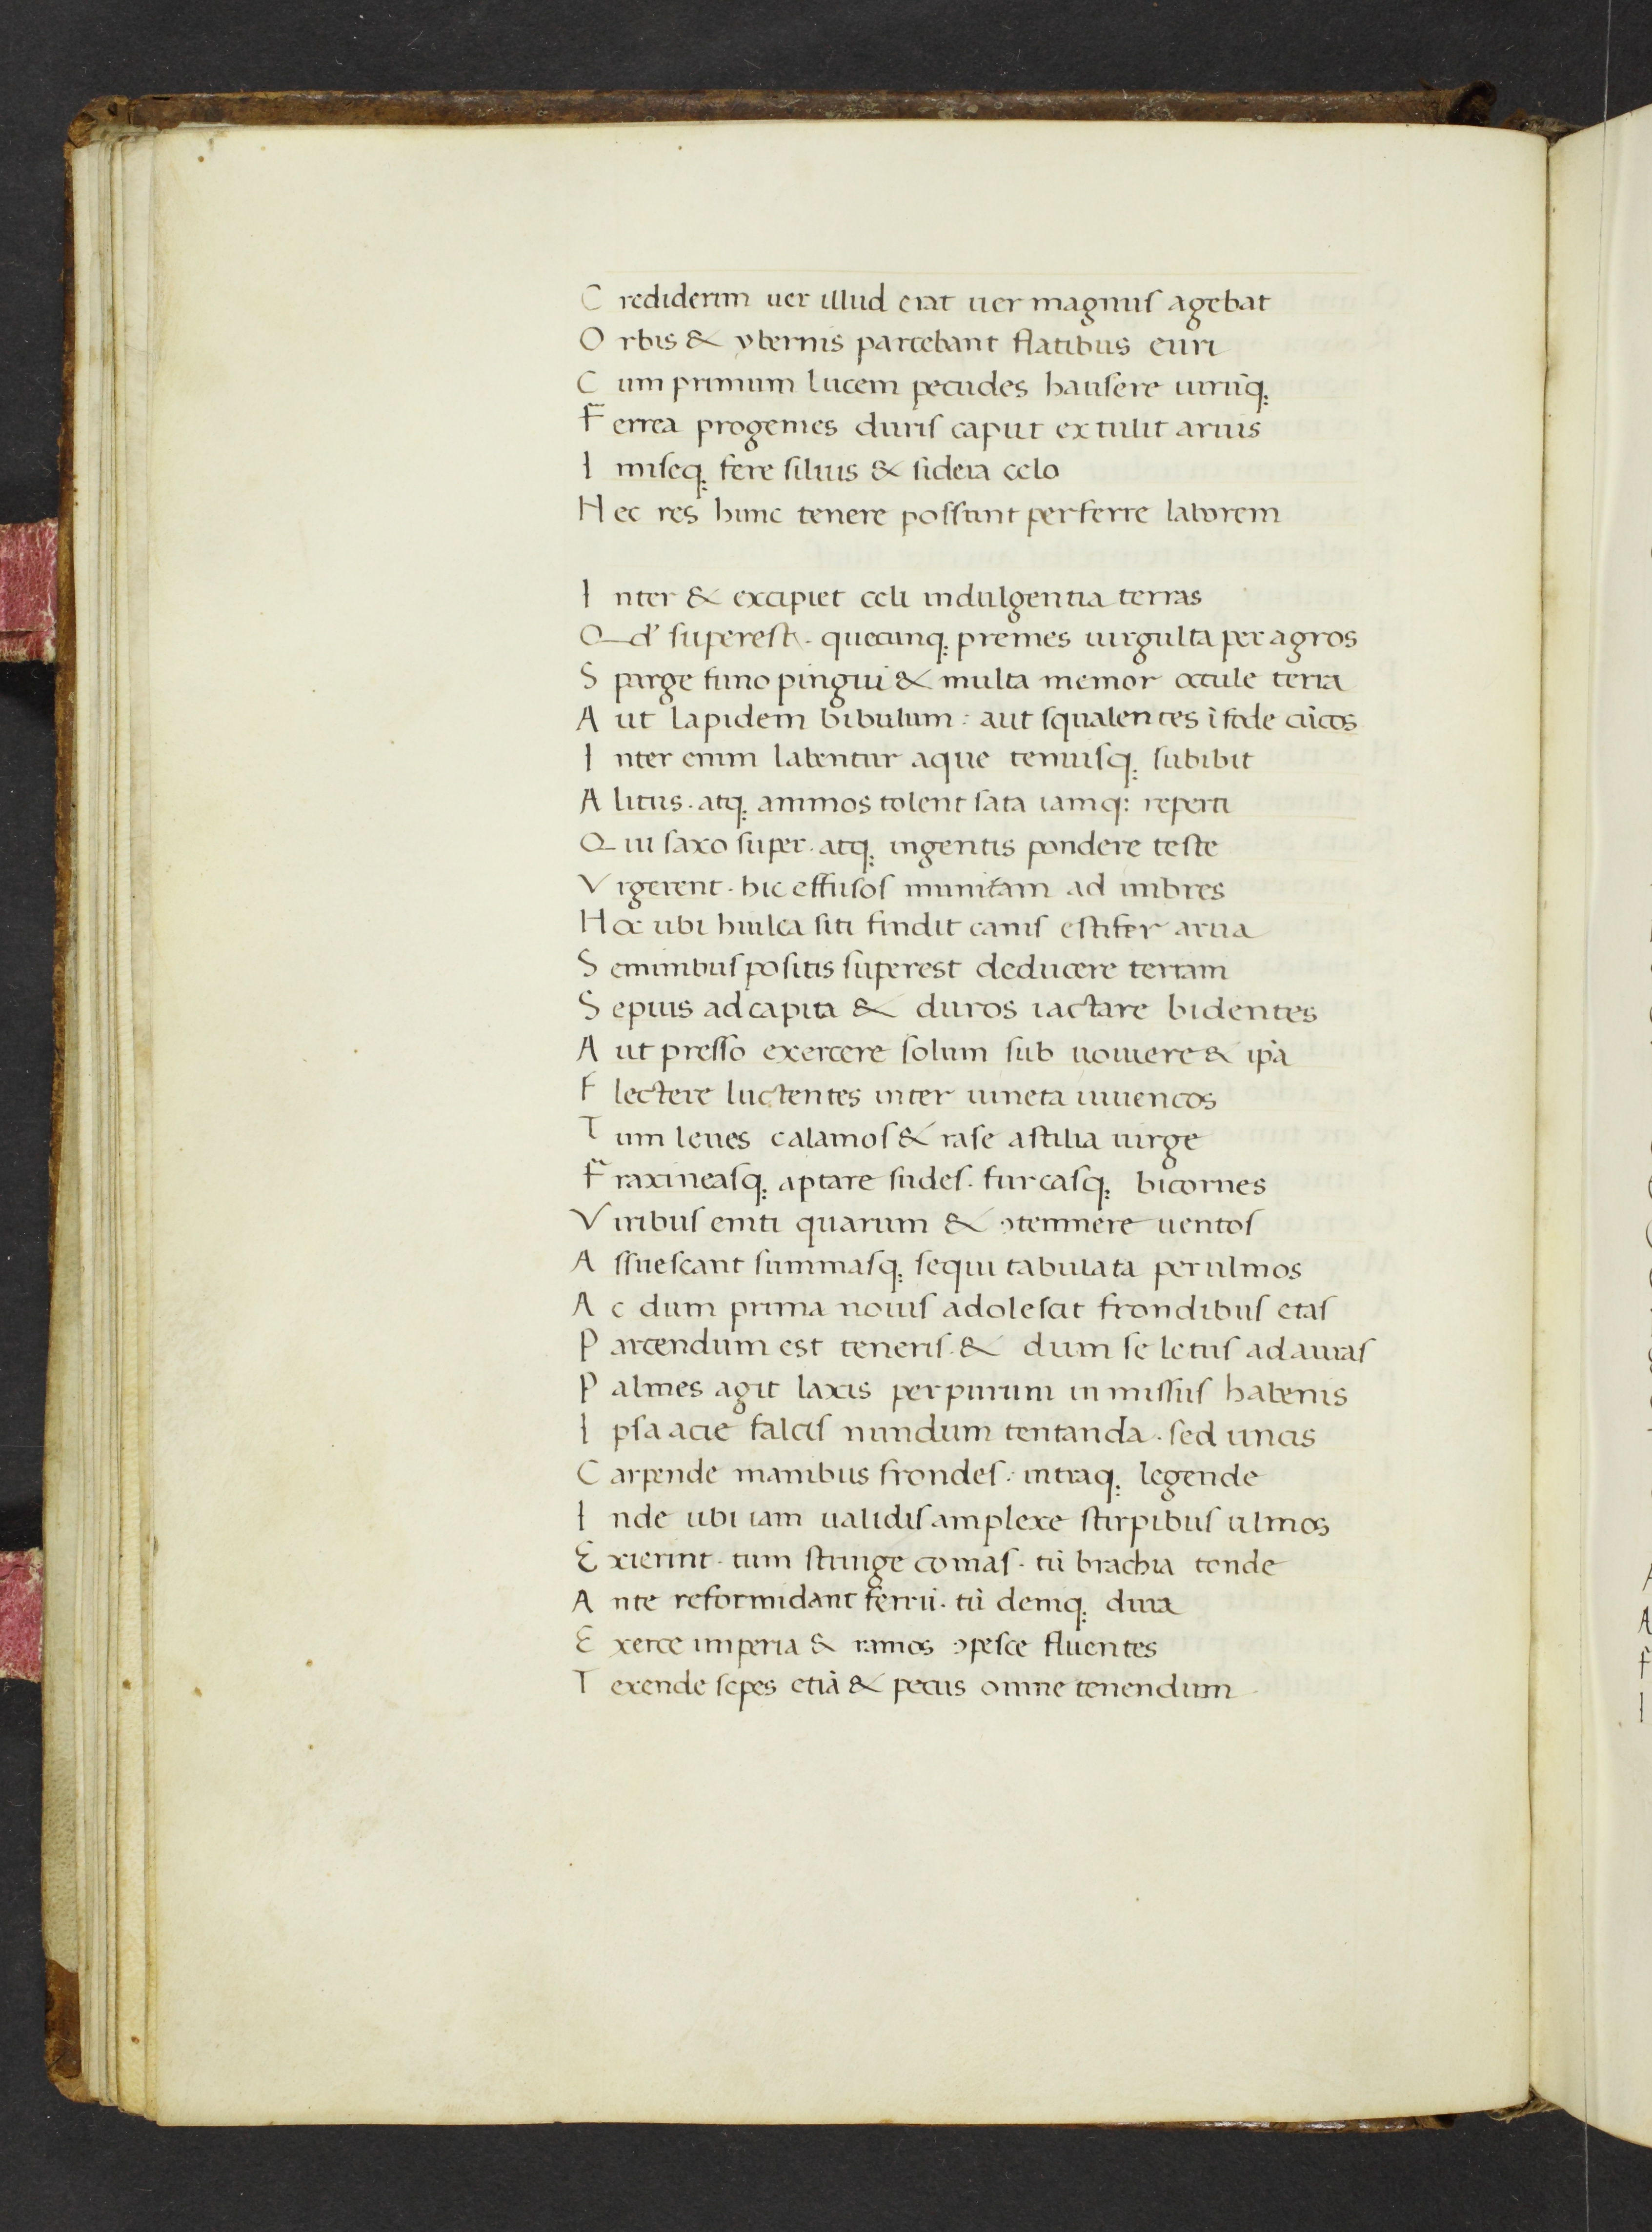 C rediderim uer illud erat uer magnus agebat
O rbis & ybernis parcebant flatibus euri
C um primum lucem pecudes hausere uirūq;
F errea progenies duris caput extulit aruis
I miseq; fere siluis & sidera celo
H ec res hunc tenere possunt perferre laborem
I nter & excipiet celi indulgentia terras
Q d' superest. quecunq; premes uirgulta per agros
S parge fimo pingui & multa memor occule terra
A ut lapidem bibulum: aut squalentes īfode cūcos
I nter enim labentur aque tenuisq; subibit
A litus. atq; animos tolent sata iamq: reperti
Q ui saxo super. atq; ingentis pondere teste
V rgerent. hic effusos munitam ad imbres
H oc ubi hiulca siti findit canis estifer arua
S eminibus positis superest deducere terram
S epius ad capita & duros iactare bidentes
A ut presso exercere solum sub uomere & ipā
F lectere luctentes inter uineta iuuencos
T um leues calamos & rase astilia uirge
F raxineasq; aptare sudes. furcasq; bicornes
V iribus eniti quarum & ɔtemnere uentos
A ssuescant summasq; sequi tabulata per ulmos
A c dum prima nouis adolescit frondibus etas
P arcendum est teneris. & dum se letus ad auras
P almes agit laxis per purum inmissus habenis
I psa acie falcis nundum tentanda. sed uncis
C arpende manibus frondes. intraq; legende
I nde ubi iam ualidis amplexe stirpibus ulmos
E xierint. tum stringe comas. tū brachia tonde
A nte reformidant ferrū. tū deniq; dura
E xerce imperia & ramos ɔpesce fluentes
T exende sepes etiā & pecus omne tenendum